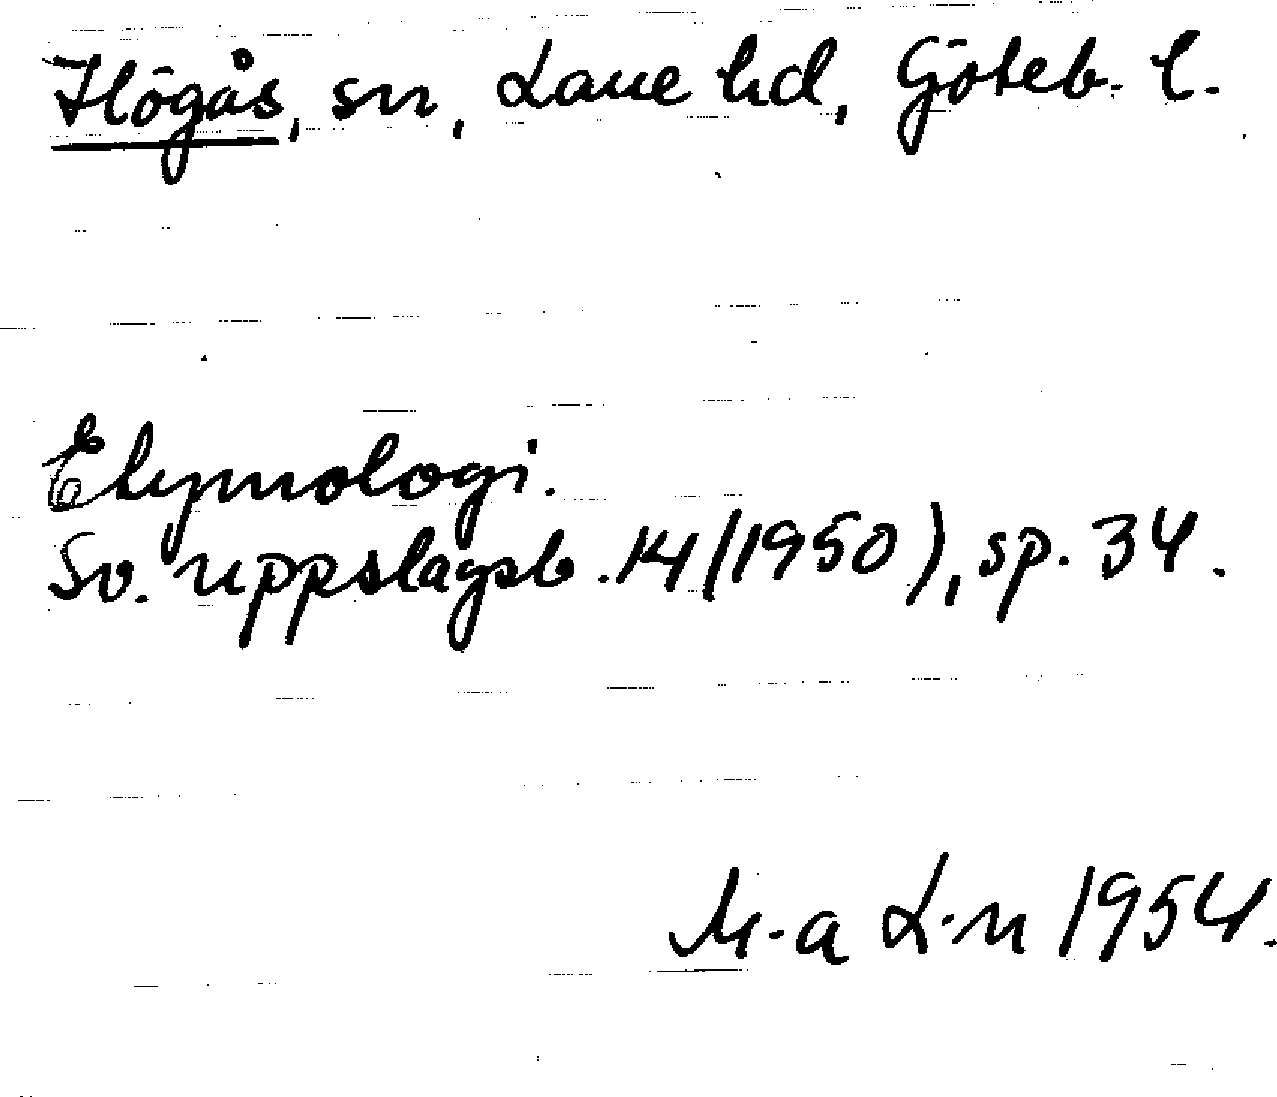 Högås, sn, Lane hd, Göteb. l.
Etymologi.
Sv. uppslagsb. 14 (1950), sp. 34.
M-a L-n 1954.